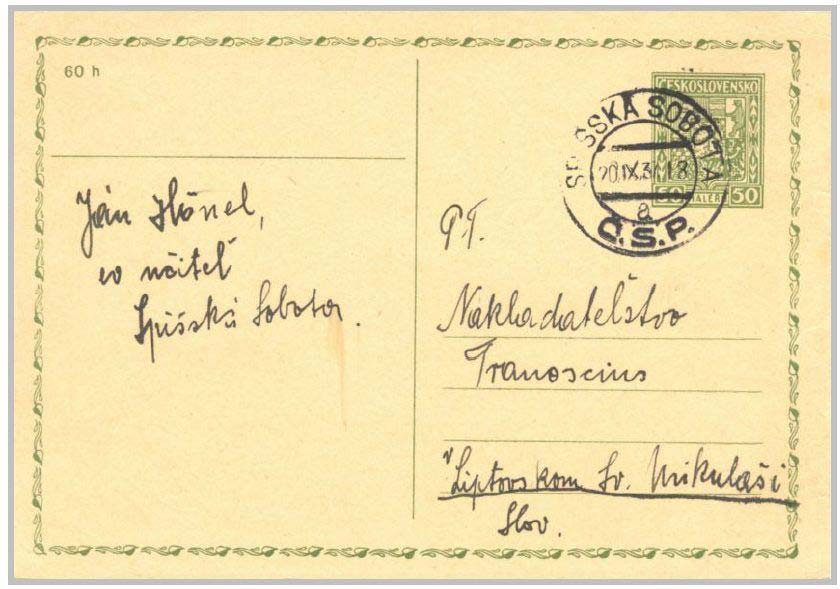 60 h
ČESKOSLOVENSKO
50 HALER 50
SPIŠSKÁ SOBOTA
20.IX.3 18
a
Č.S.P.
Ján Hönel,
ev učiteľ
Spišská Sobota.
PT.
Nakladateľstvo
Tranoscius
v Liptovskom Sv. Mikuláši
Slov.